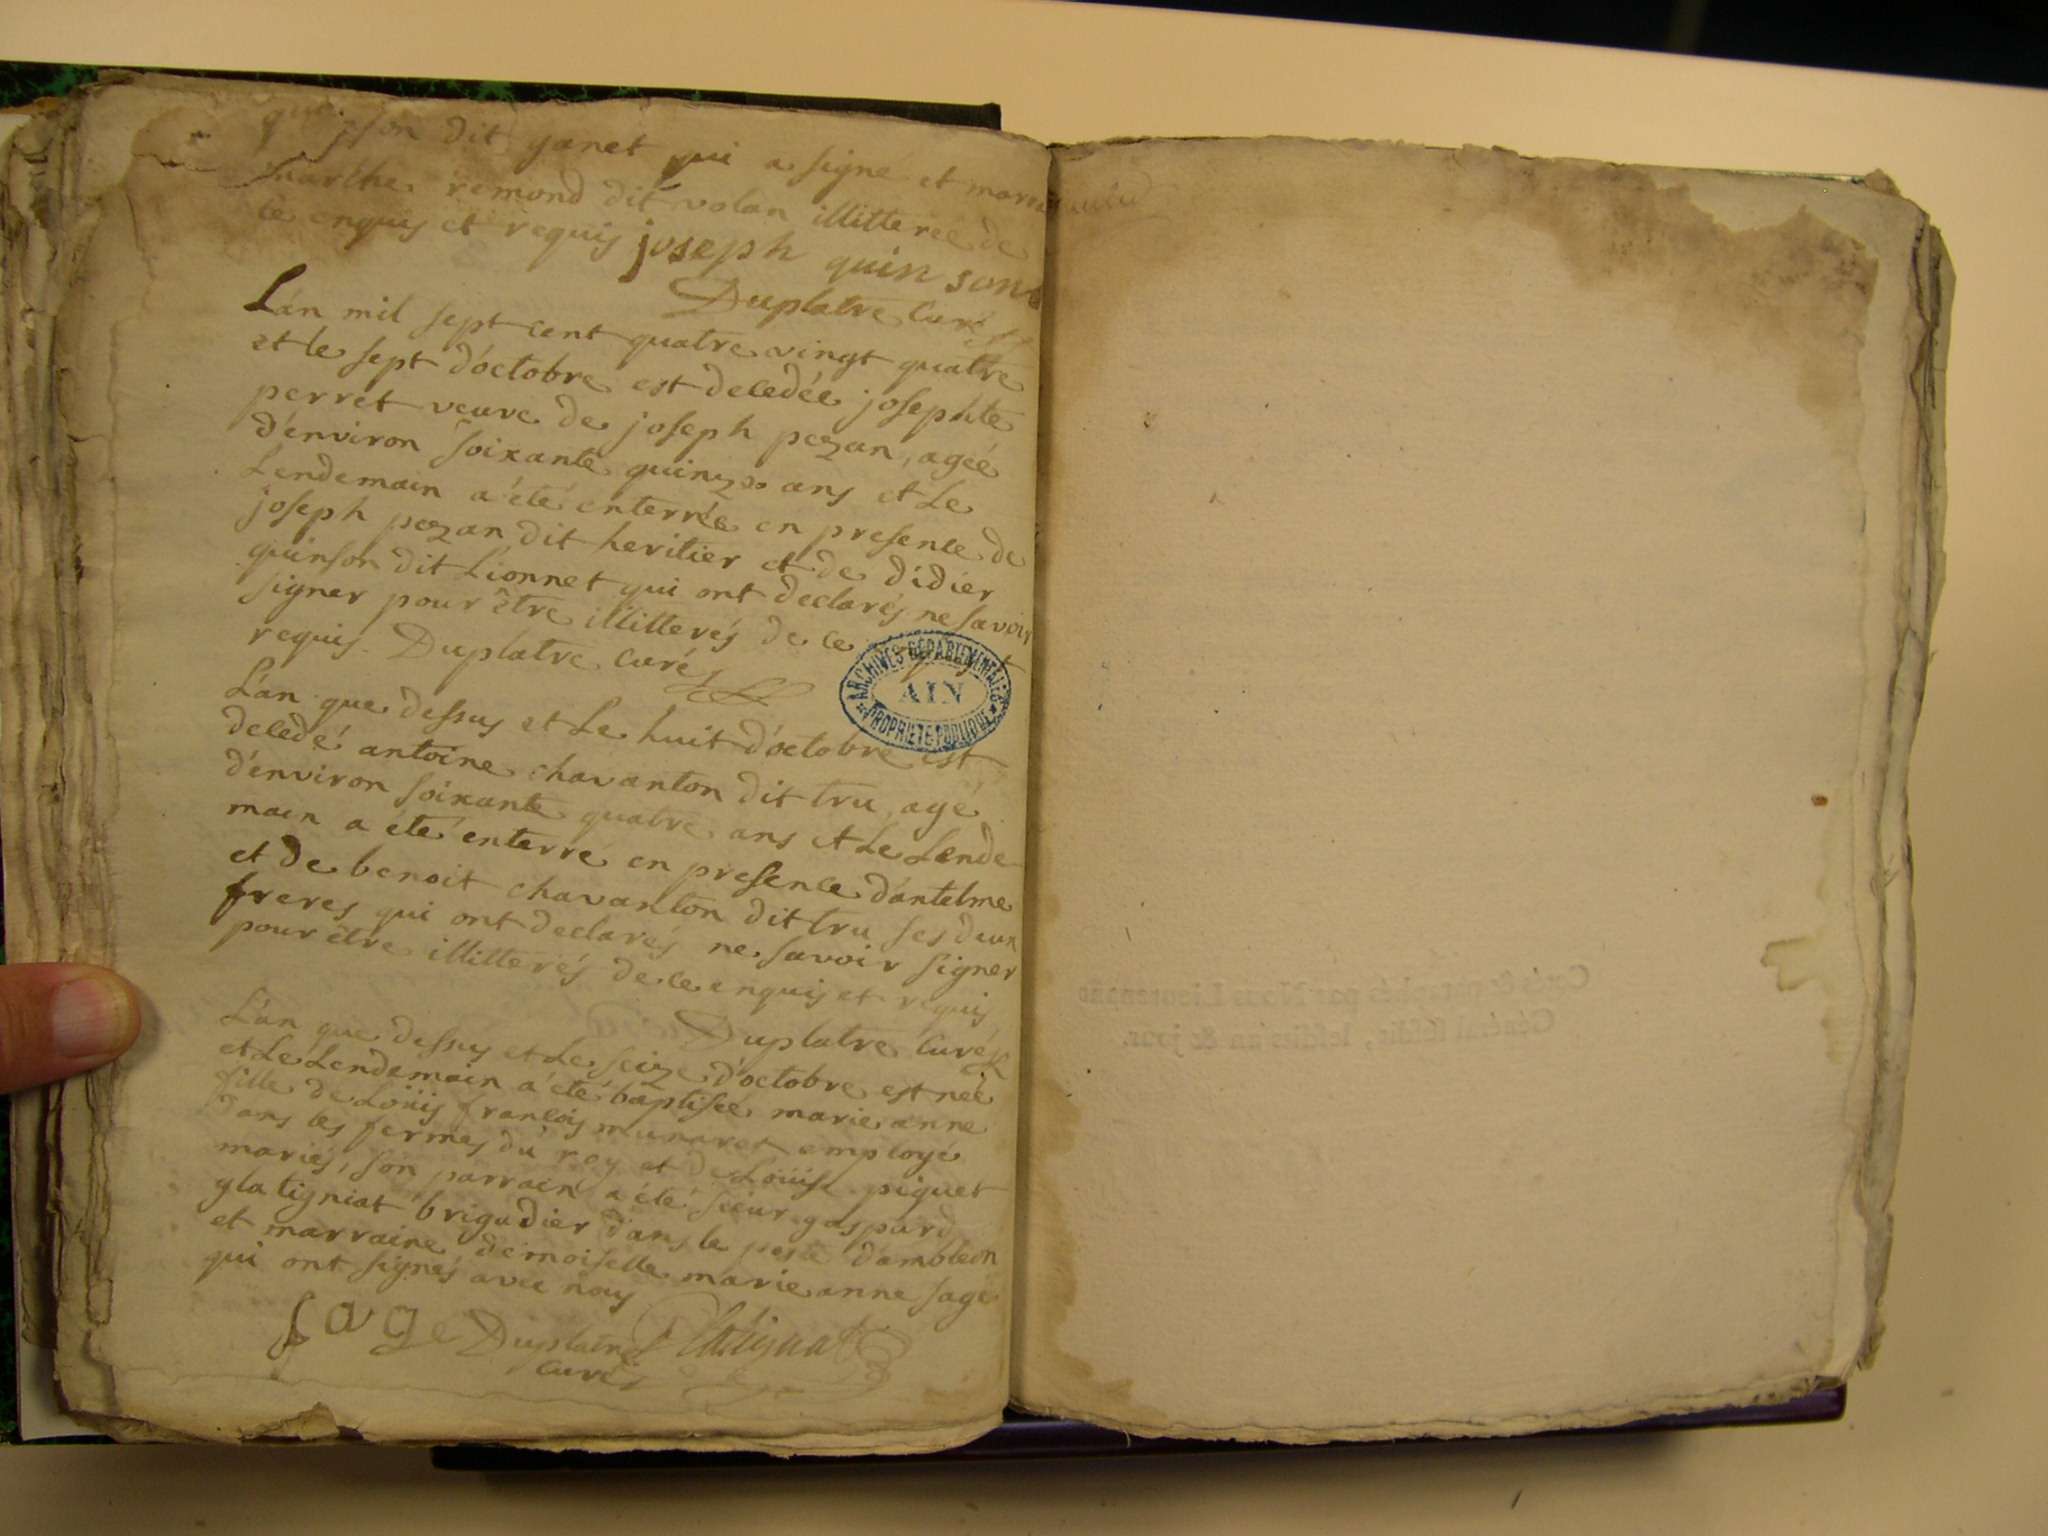 dit ganet qui a signé et
marthe remond dit volan illitterée de
ce enquis et requis joseph quinson
Duplatre Curé
Lan mil sept cent quatre vingt quatre
et le sept d'octobre est decedée josephte
perret veuve de joseph pezan, agée
d'environ soixante quinze ans et Le
Lendemain a été enterrée en presence de
joseph pezan dit heritier et de didier
quinson dit Lionnet qui ont declarés ne savoir
signer pour être illitterés de ce
requis. Duplatre Curé
L'an que dessus et Le huit d'octobre est
decedé antoine chavanton dit tru, agé
d'environ soixante quatre ans et Le Lende
main a été enterré en presence d'antelme
et de benoit chavanton dit tru ses deux
freres qui ont declarés ne savoir signer
pour être illitterés de ce enquis et requis
Duplatre Curé
L'an que dessus et Le seize d'octobre est née
et Le Lendemain a été baptisée marie anne
fille de Loüis françois munaret employé
dans les fermes du roy et de Loüise piguet
mariés, son parrain a été sieur gaspard
glatigniat brigadier dans le poste d'ambleon
et marraine demoiselle marie anne sage
qui ont signés avec nous
sage Duplatre Glatignat
Curé
ARCHIVES DEPARTEMENTALES
AIN
PROPRIETE PUBLIQUE
Cotés & paraphés par Nous Lieutenant
Général susdit, lesdits an & jour.